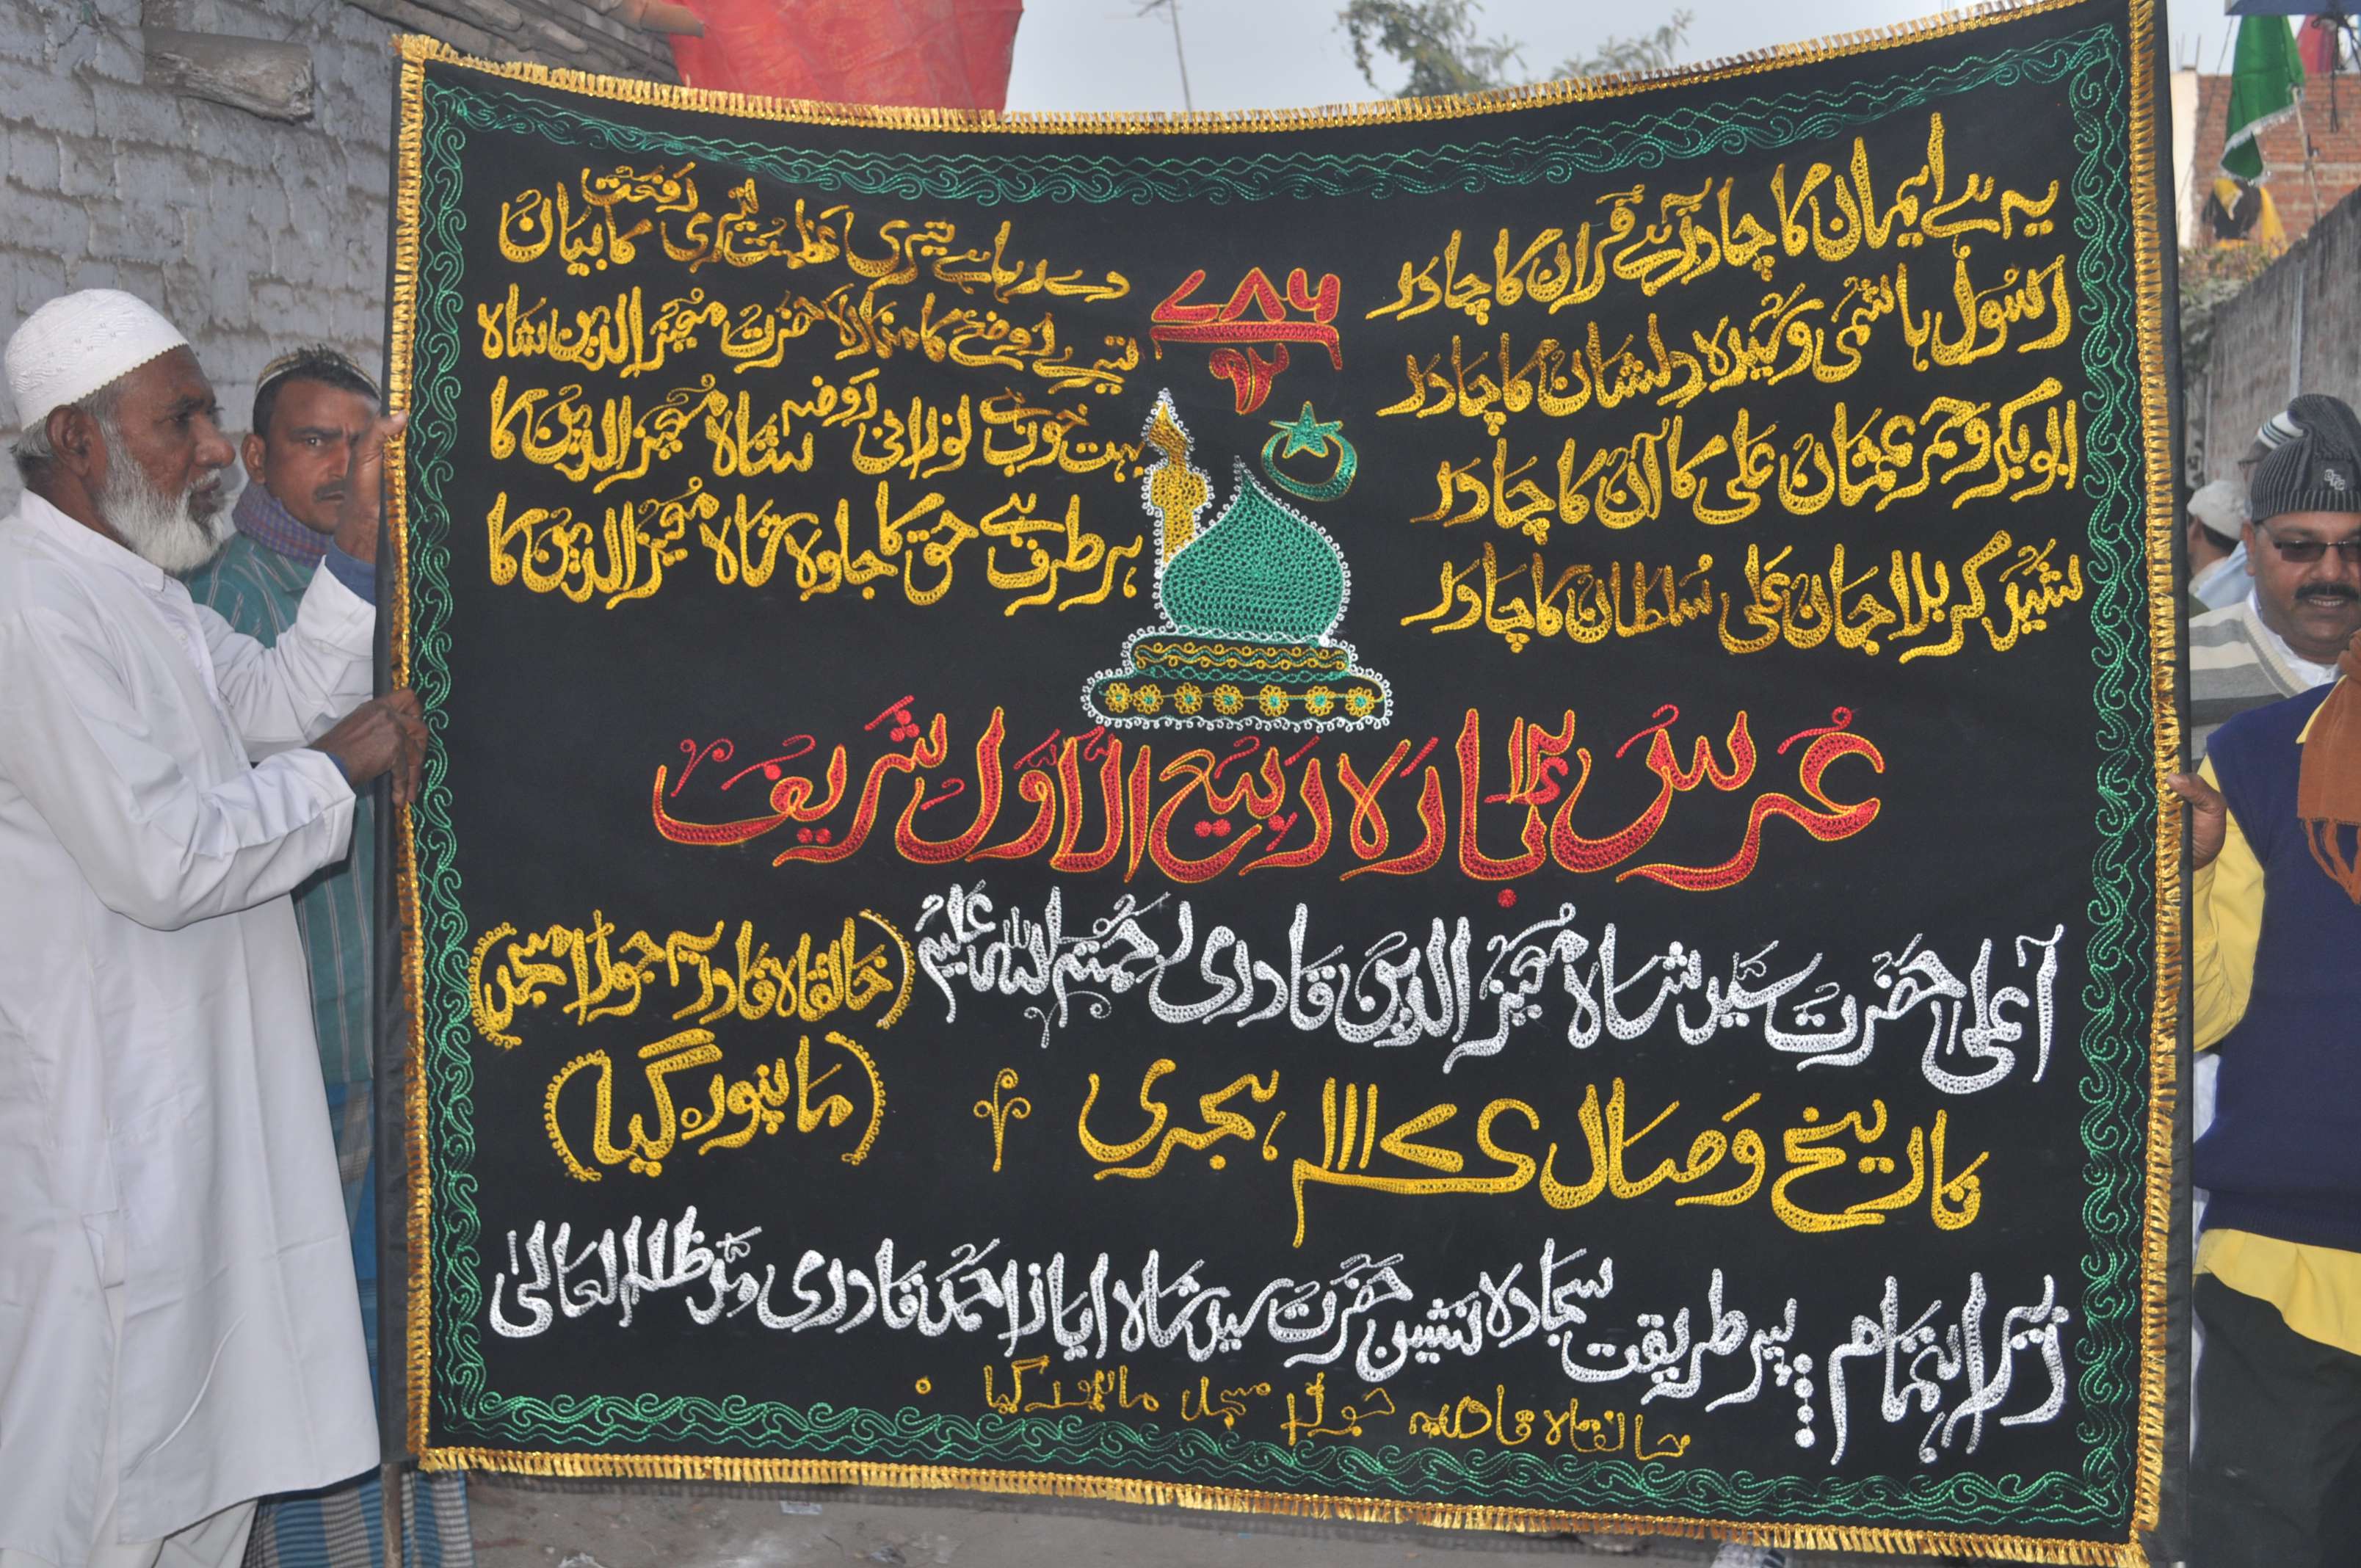 ۷۸۶
۹۲
یہ ہے ایمان کا چادر آئے قرآن کا چادر
رسول ہاشمی و دلشان کا چادر
ابوبکر و عمر عثمان علی کا آن کا چادر
شبیر کربلا جان علی سلطان کا چادر
دے رہا ہے تیری عظمت تیری رفعت کا بیان
تیرے روضے کا منارہ حضرت معیز الدین شاہ
بہت خوب ہے نورانی روضہ شاہ معیز الدین کا
ہر طرف ہے حق کا جلوہ شاہ معیز الدین کا
عرس ۱۲ بارہ ربیع الاول شریف
اعلی حضرت سید شاہ معیز الدین قادری رحمتہ اللہ علیہ (خانقاہ قادریہ جوڑا مسجد)
تاریخ وصال ہجری (مانپور گیا)
زیر اہتمام پیر طریقت سجادہ نشین حضرت سید شاہ ایاز احمد قادری مد ظلہ العالیٰ
خانقاہ قادریہ جوڑا مسجد مانپور گیا